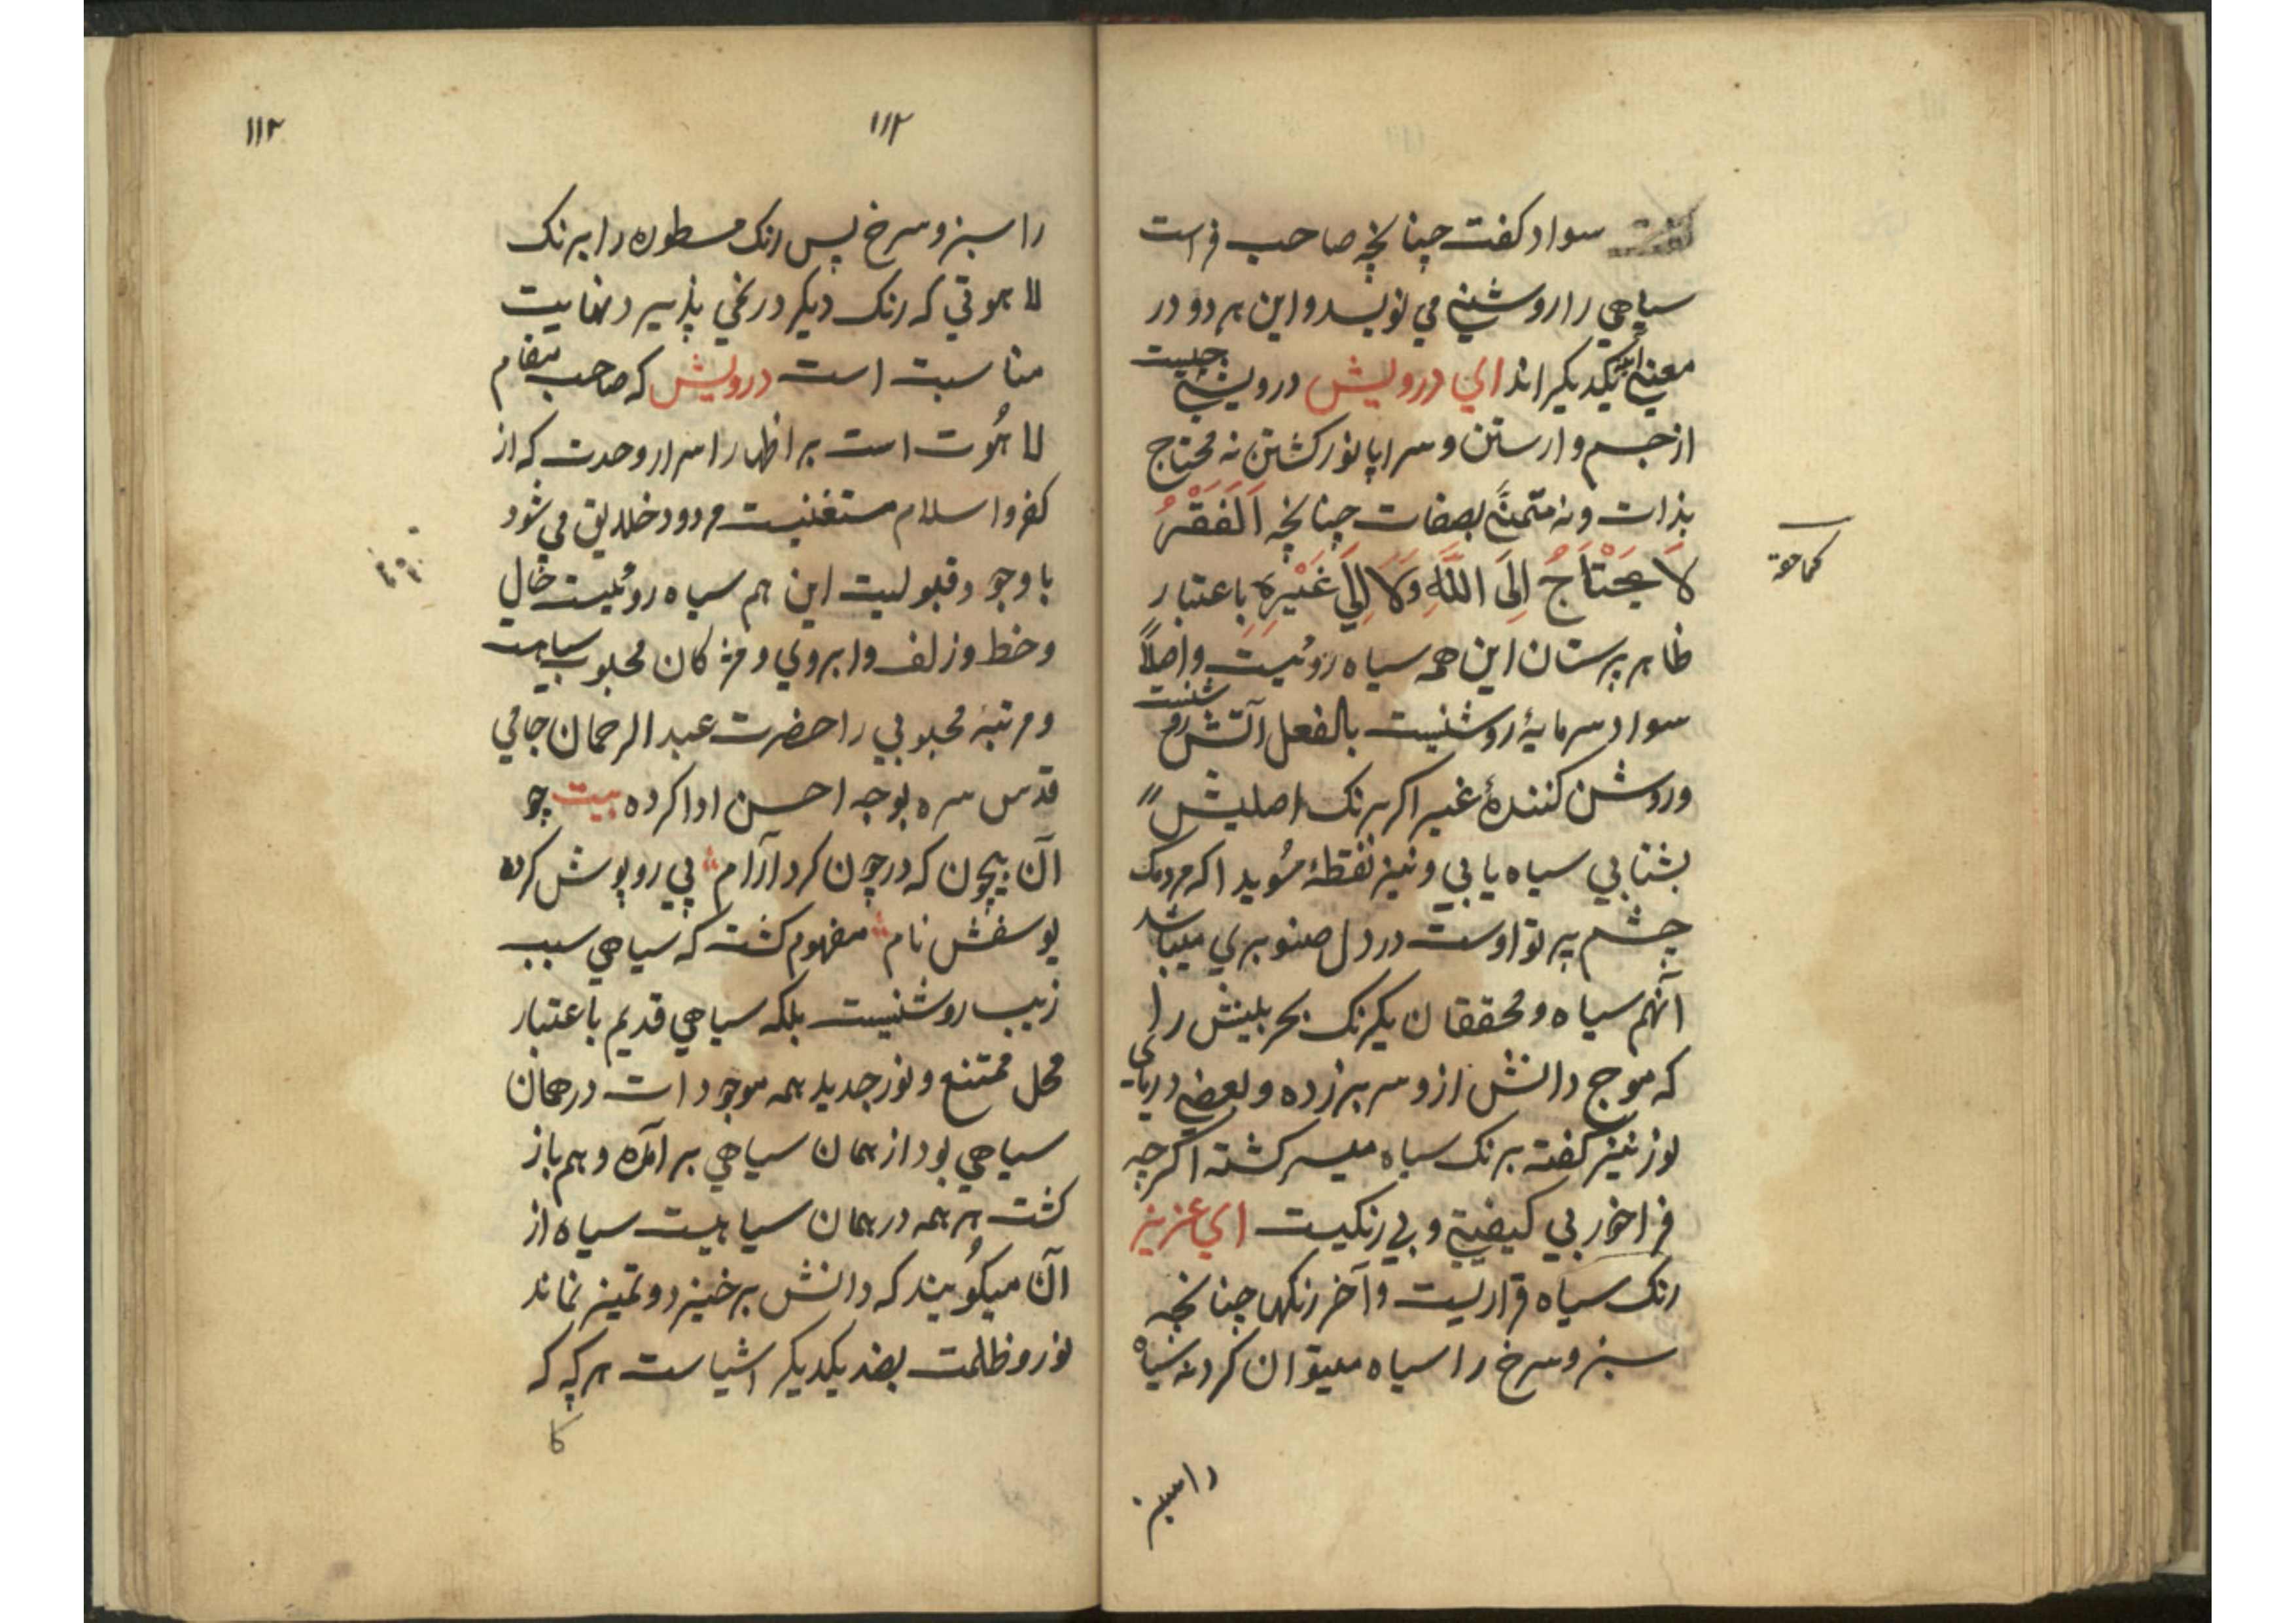 سواد كفت چنانچه صاحب فراست
سياهي را روشني مي نويسد و اين هر دو در
معني يكديكر اند اي درويش درويشي چيست
از جسم وارستن و سراپا نور كشتن نه محتاج
بذات و نه متمني بصفات چنانچه اَلفَقْرُ
لَا يَحْتَاجُ اِلَى اللَّهِ وَلَا اِلَى غَيْرِهِ باعتبار
كماحقه
ظاهر پرستان اين همه سياه روئيت و اصلاً
سواد سرمايۀ روشنيست بالفعل آتش روشنست
و روشن كنندۀ غير اكر برنك اصليش
بشتابي سياه يابي و نيز نقطۀ سُويدا كه مردمك
چشم پرتو اوست در دل صنوبري ميباشد
آنهم سياه و محققان يكرنك بحر بلينش را
كه موج دانش ازو سر بر زده و بعضي درياي
نور نيز كفته برنك سياه ميسر كشته اكرچه
فراخور بي كيفيتي و بي رنكيست اي عزيز
رنك سياه قراريست و آخر رنكها چنانچه
سبز و سرخ را سياه ميتوان كرد نه سياه
را سبز
١١٢
١١٢
را سبز و سرخ پس رنك مسطوره را برنك
لاهوتي كه رنك ديكر در نمي پذيرد نهايت
مناسبت است درويش كه صاحب مقام
لاهُوت است بر اظهار اسرار وحدت كه از
كفر و اسلام مستغنيست مردود خلايق مي شود
با وجود قبوليت اين هم سياه روئيست خال
و خط و زلف و ابروي و مژكان محبوب سياهست
و مرتبۀ محبوبي را حضرت عبد الرحمان جامي
قدس سره بوجه احسن ادا كرده بيت چو
آن بيچون كه در چون كرد آرام پي روپوش كرده
يوسفش نام مفهوم كشت كه سياهي سبب
زيب روشنيست بلكه سياهي قديم باعتبار
محل ممتنع و نور جديد همه موجودات در همان
سياهي بود از همان سياهي بر آمده و هم باز
كشت هر همه در همان سياهيست سياه از
آن ميكُويند كه دانش برخيزد و تميز نماند
نور و ظلمت بضد يكديكر اشياست هر كه كه
كا